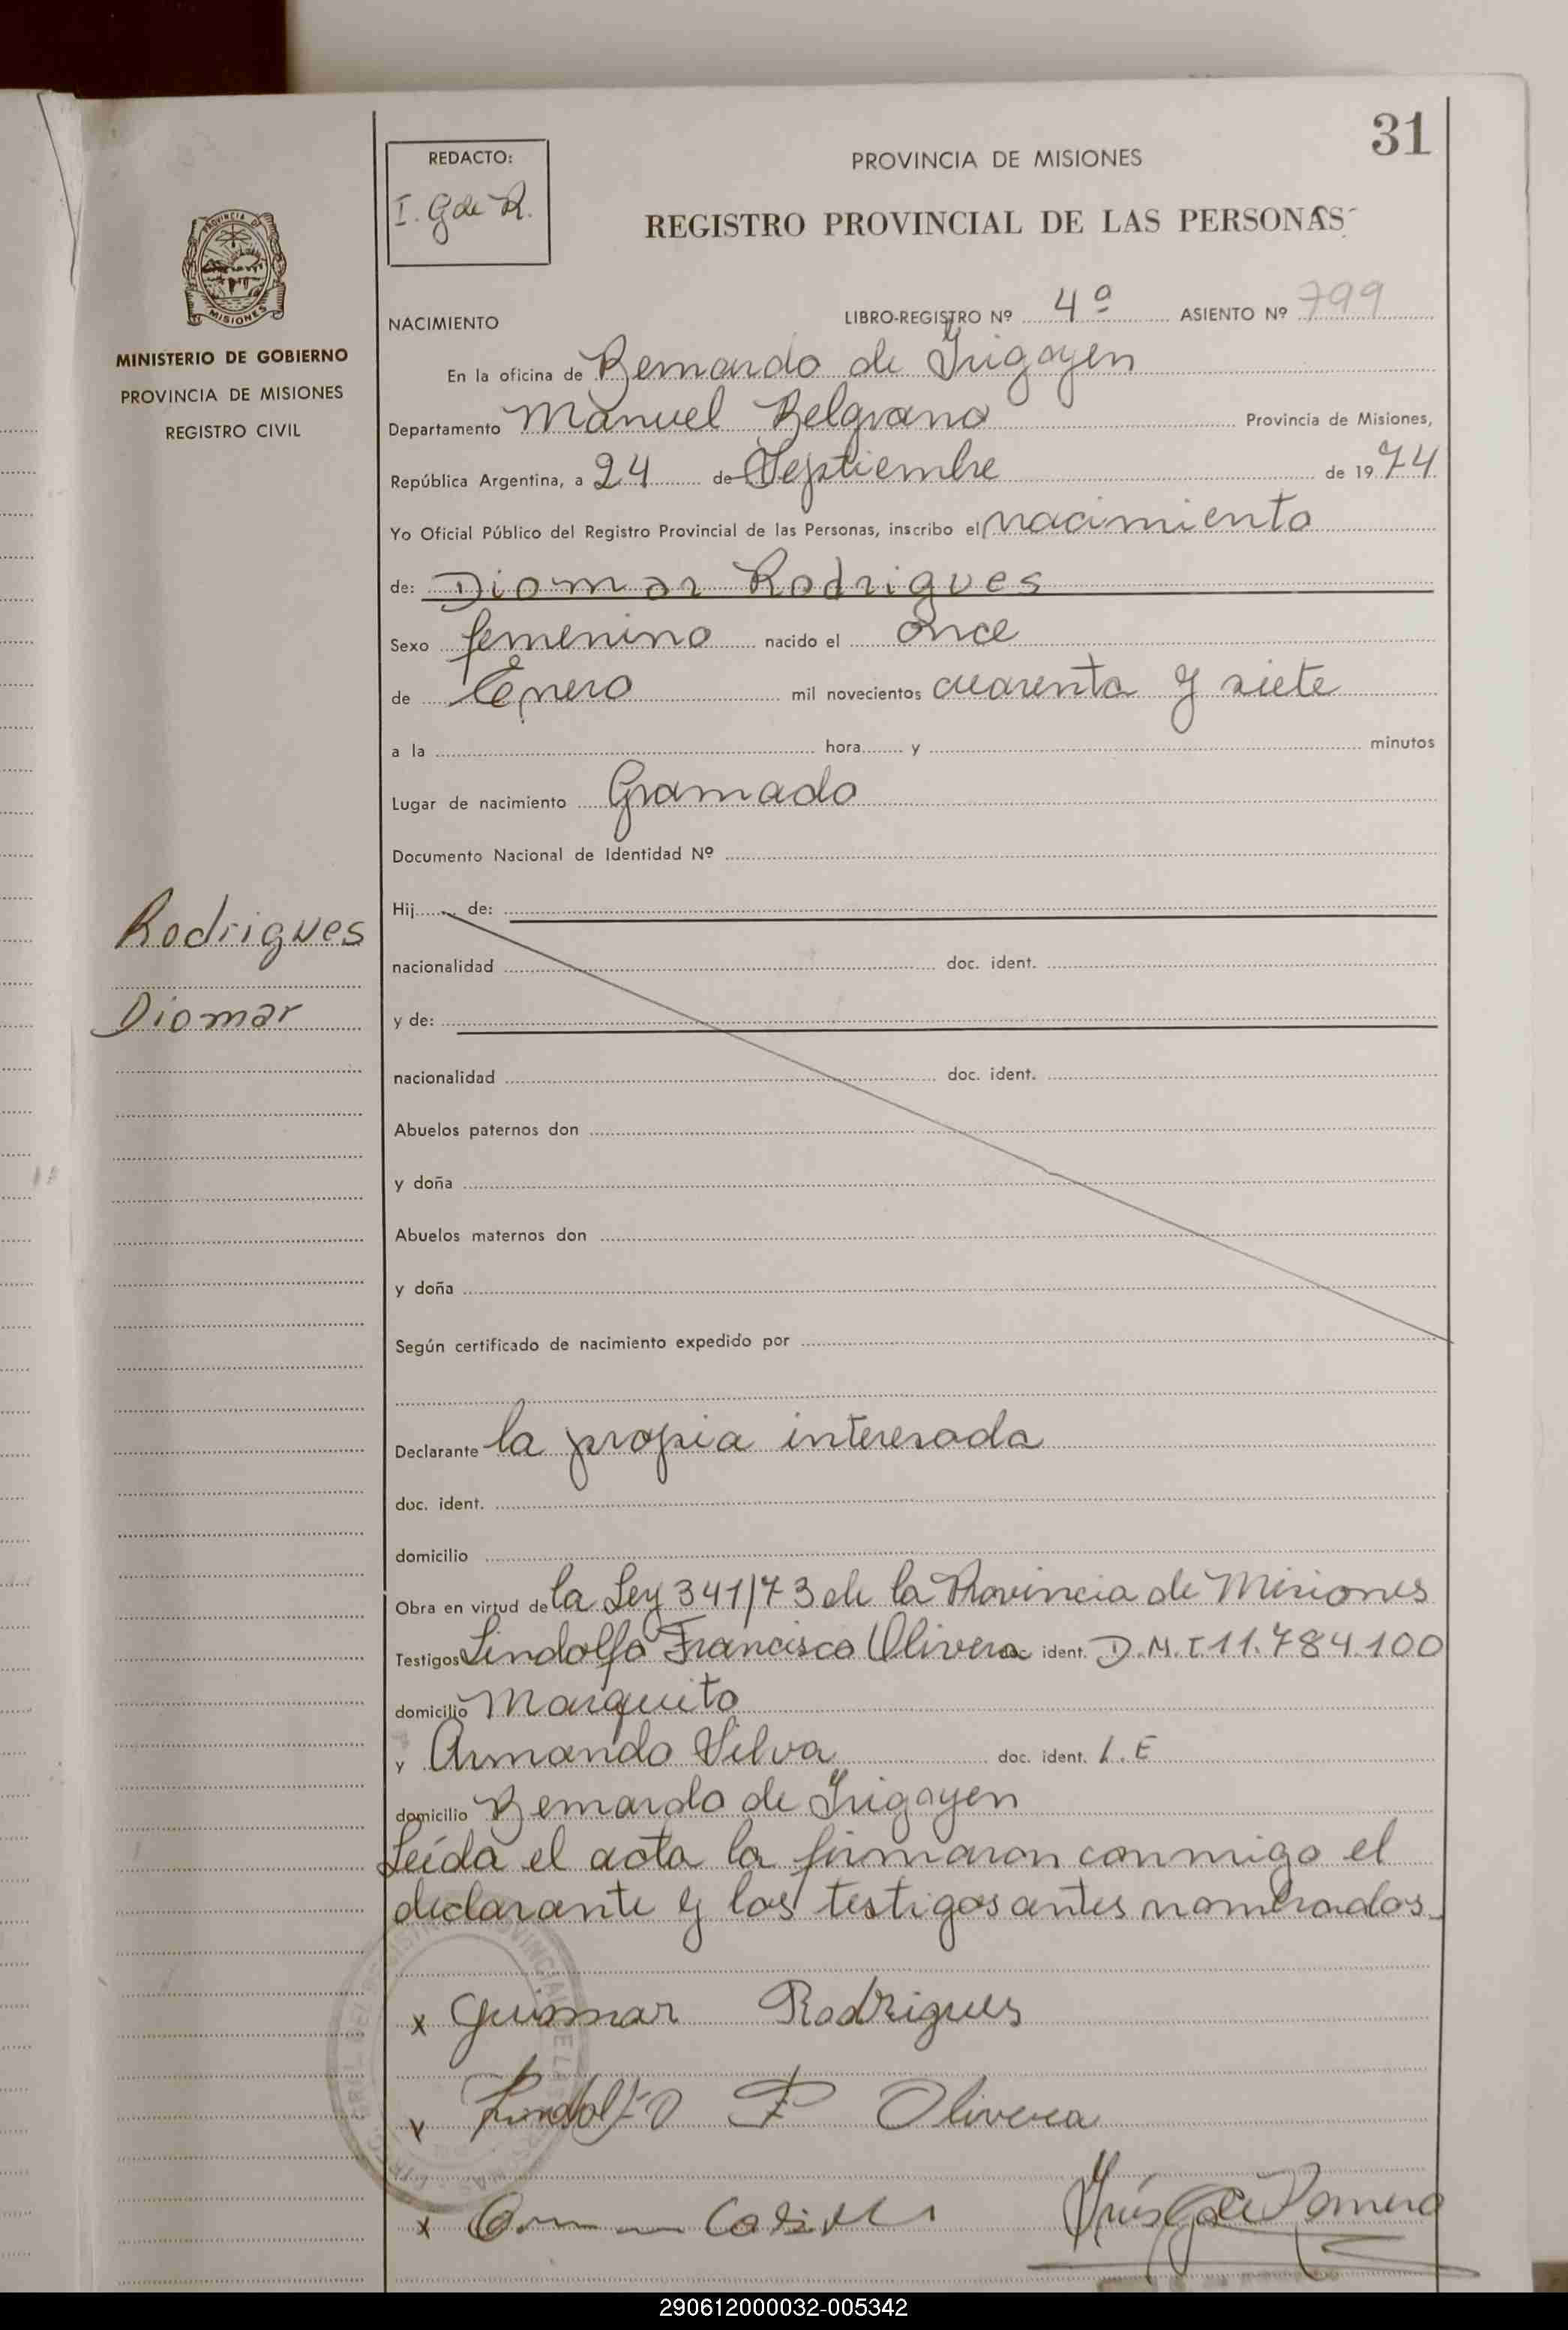 31
REDACTO:
I. G de R.
PROVINCIA DE MISIONES
REGISTRO PROVINCIAL DE LAS PERSONAS
PROVINCIA DE
MISIONES
MINISTERIO DE GOBIERNO
PROVINCIA DE MISIONES
REGISTRO CIVIL
NACIMIENTO LIBRO-REGISTRO Nº 4º ASIENTO Nº 799
En la oficina de Bernardo de Irigoyen
Departamento Manuel Belgrano Provincia de Misiones,
República Argentina, a 24 de Septiembre de 1974
Yo Oficial Público del Registro Provincial de las Personas, inscribo el nacimiento
de: Diomar Rodrigues
Sexo femenino nacido el once
de Enero mil novecientos cuarenta y siete
a la hora y minutos
Lugar de nacimiento Gramado
Documento Nacional de Identidad Nº
Rodrigues
Diomar
Hij de:
nacionalidad doc. ident.
y de:
nacionalidad doc. ident.
Abuelos paternos don
y doña
Abuelos maternos don
y doña
Según certificado de nacimiento expedido por
Declarante la propia interesada
doc. ident.
domicilio
Obra en virtud de la Ley 341/73 de la Provincia de Misiones
Testigos Lindolfo Francisco Olivera ident. D.N.I 11.784.100
domicilio Marquito
y Armando Silva doc. ident. L.E
domicilio Bernardo de Irigoyen
Leída el acta la firmaron conmigo el
declarante y los testigos antes nombrados.
x Guiomar Rodrigues
x Lindolfo F Olivera
x
290612000032-005342